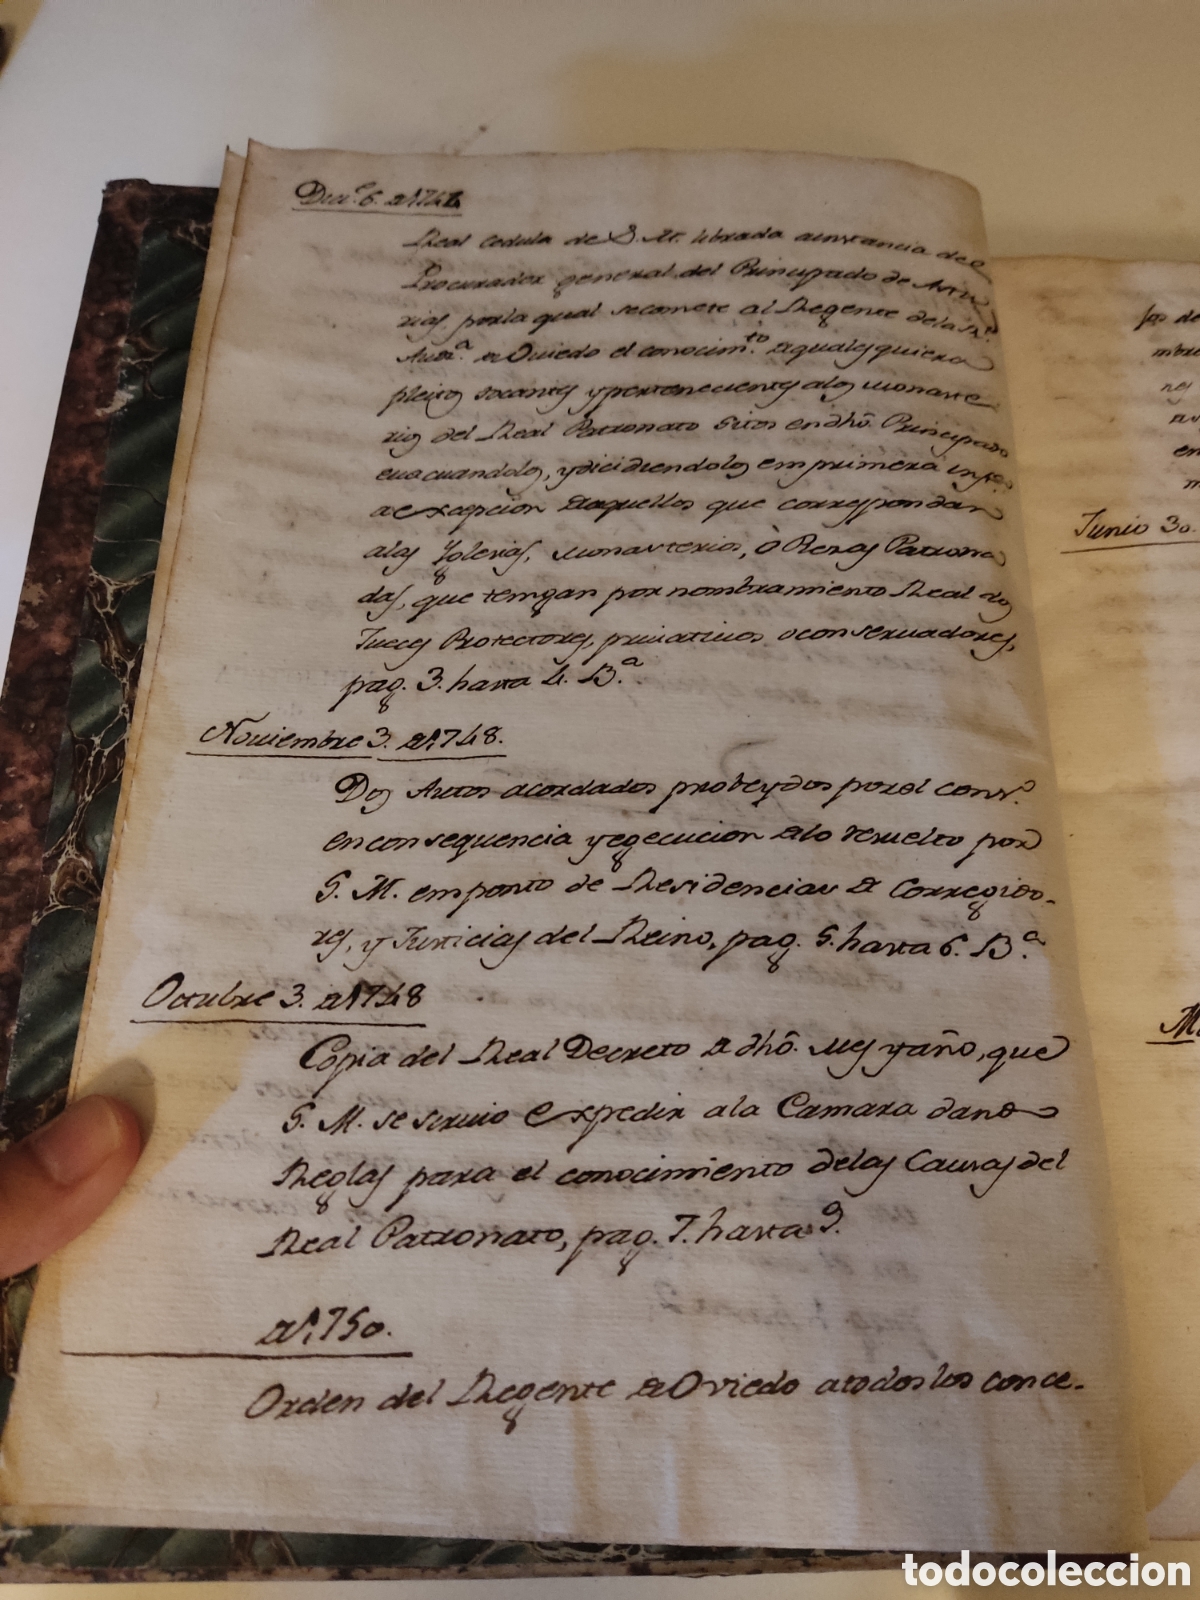 Dice. 6. de 1748
Real Cedula de S. M. librada a instancia del
Procurador general del Principado de Astu
rias, porla qual secomete al Regente dela Rl.
Auda. de Oviedo el conocimto. de qualesquiera
pleitos tocantes y pertenecientes alos monaste
rios del Real Patronato sitos en dho. Principado
evacuandolos, y dicidiendolos em primera insta.
a excepcion de aquellos que correspondan
alas Yglesias, Monasterios, ò Pezas Patrona
das, que tengan por nombramiento Real los
Jueces Protectores, privativos o conservadores,
pag. 3. hasta 4. Ba.
Noviembre 3. de 1748.
Dos Autos acordados probeydos por el Consº.
en consequencia y egecucion de lo resuelto por
S. M. em ponto de Residencias de Corregido-
res, y Justicias del Reino, pag. 5. hasta 6. Ba.
Octubre 3. de 1748
Copia del Real Decreto de dho. Mes y año, que
S. M. se servio expedir ala Camara dando
Reglas para el conocimiento delas Causas del
Real Patronato, pag. 7. hasta 9.
de 1,750.
Orden del Regente de Oviedo a todos los conce-
Junio 30.
todocoleccion